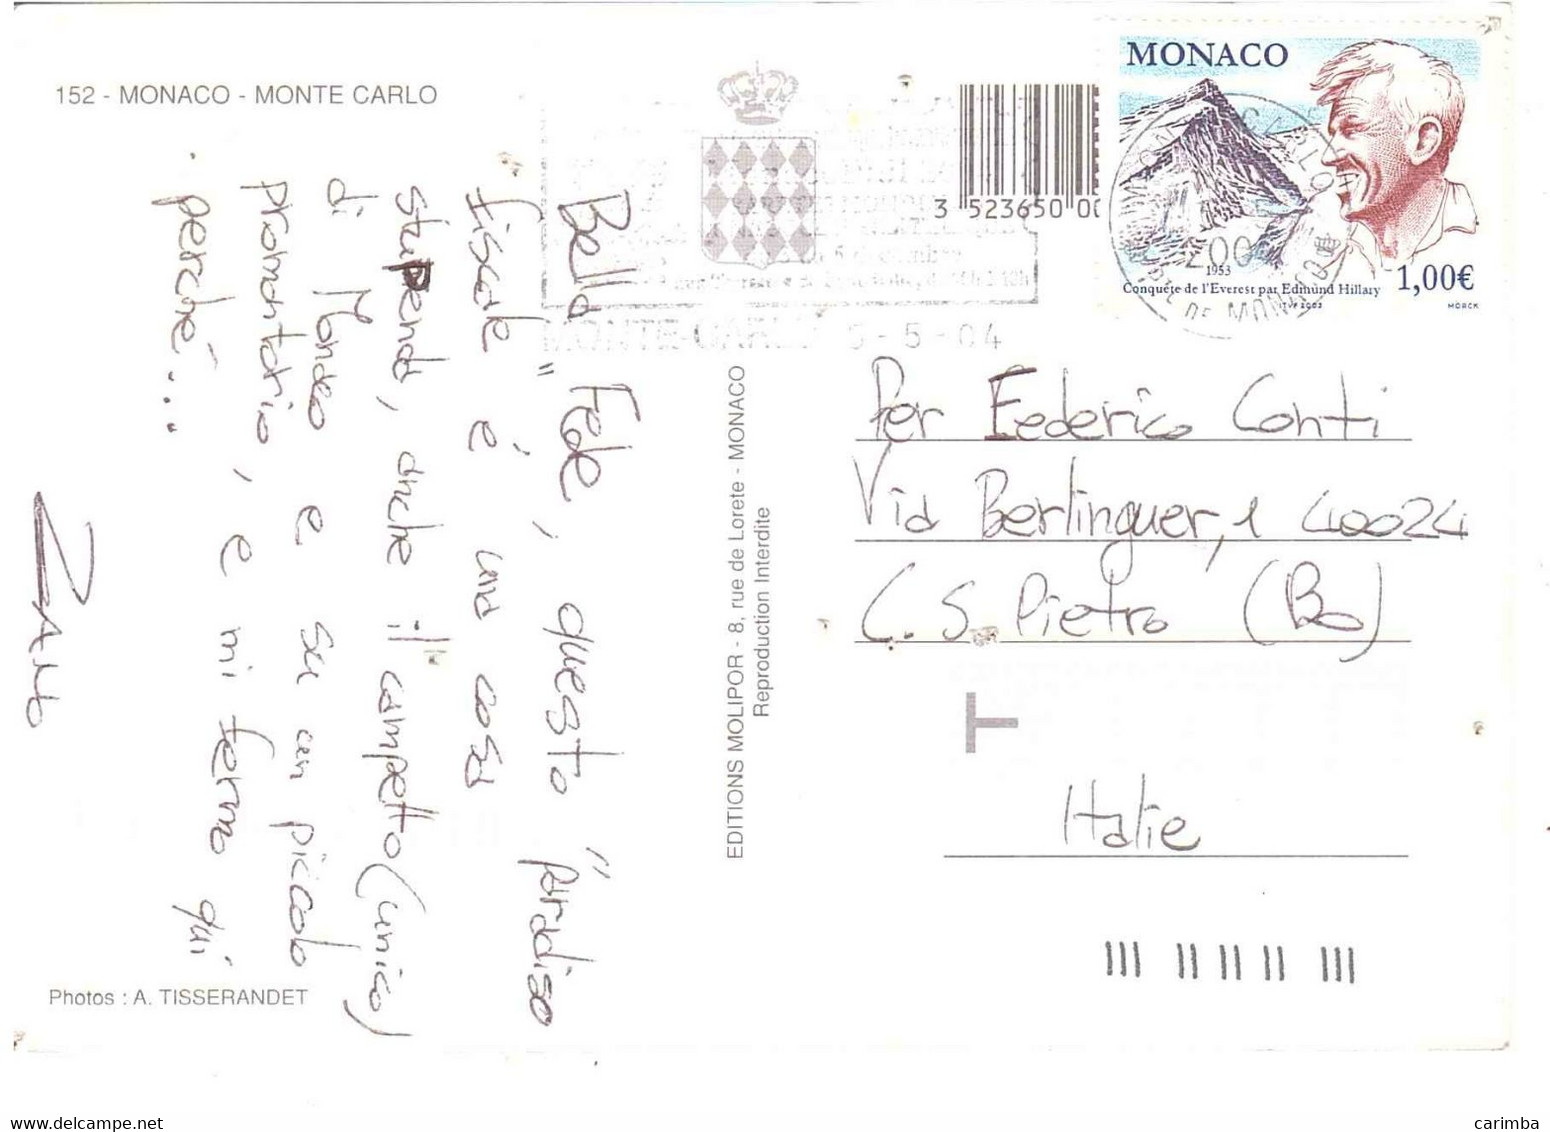 152 - MONACO - MONTE CARLO
Bella Fede, questo "paradiso
fiscale" é una cosa
stupenda, anche il campetto (unico)
di Monaco e su un piccolo
promontorio, e mi fermo qui
perché...
ZANO
Photos : A. TISSERANDET
EDITIONS MOLIPOR - 8, rue de Lorete - MONACO
Reproduction Interdite
3 523650 00
MONTE-CARLO 5-5-04
MONACO
1953
Conquête de l'Everest par Edmund Hillary
1,00€
ITVF 2003
MORCK
Per Federico Conti
Via Berlinguer, 1 40024
C. S. Pietro (Bo)
T
Italie
carimba